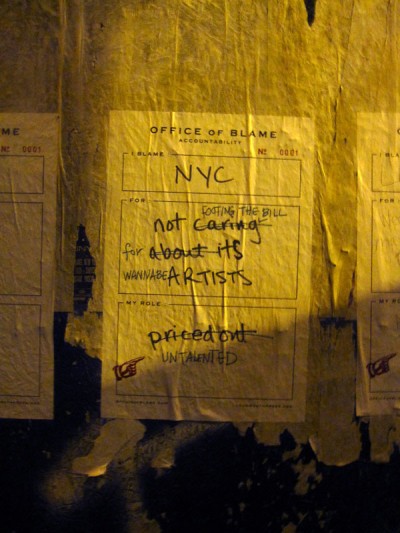 OFFICE OF BLAME
ACCOUNTABILITY
I BLAME
Nº 0001
NYC
FOR
FOOTING THE BILL
not caring
for about its
WANNABE ARTISTS
MY ROLE
priced out
UNTALENTED
ME
Nº 0001